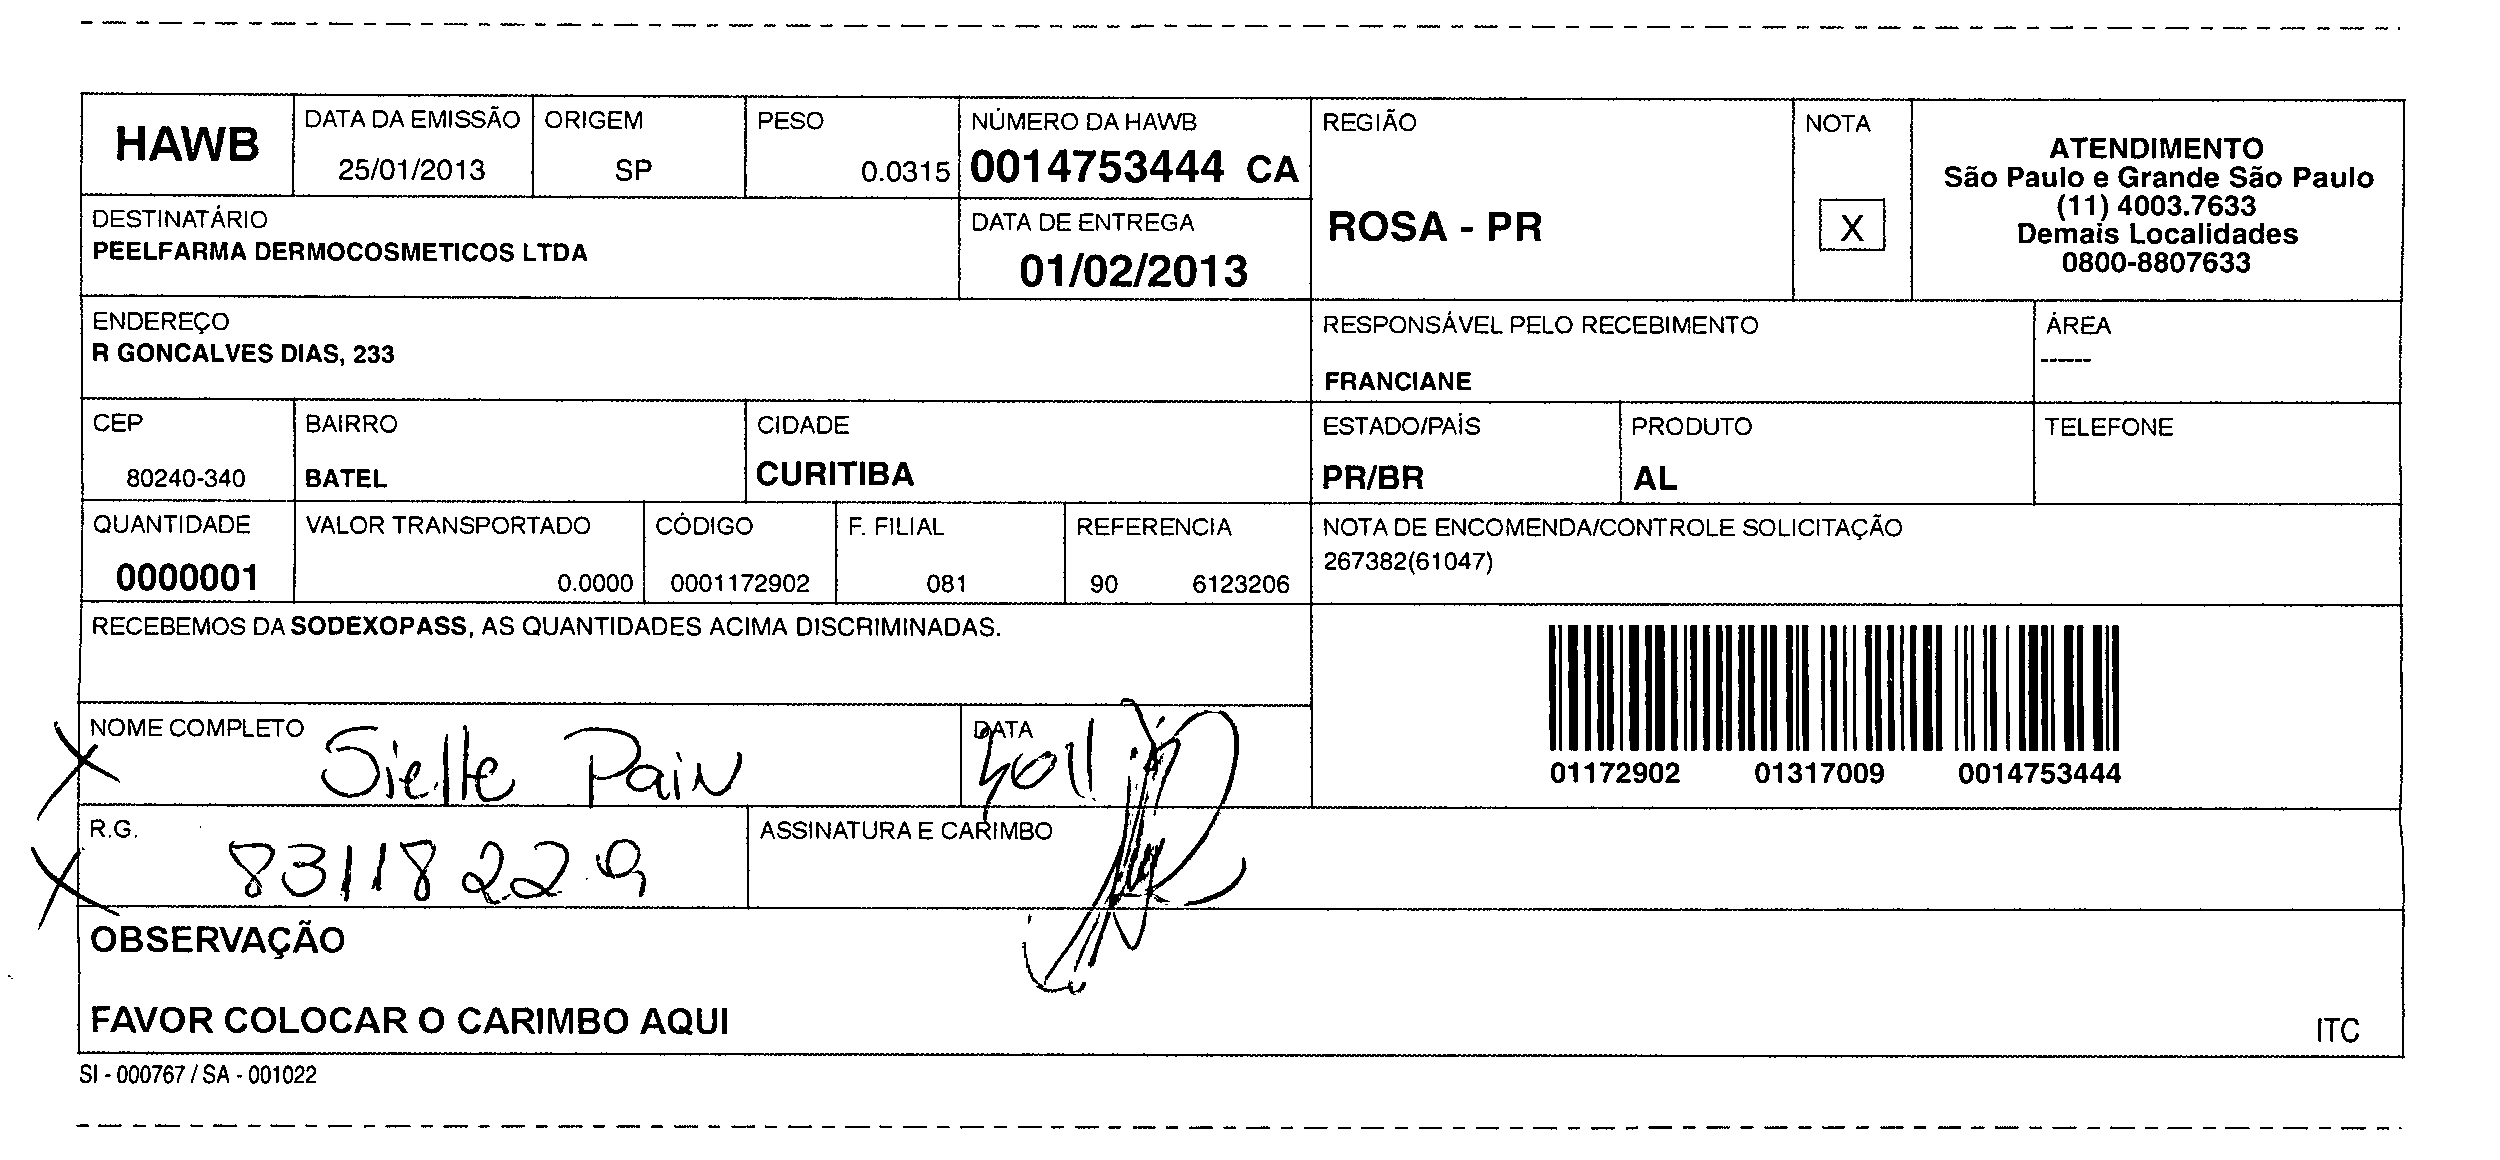 HAWB
DATA DA EMISSÃO
25/01/2013
ORIGEM
SP
PESO
0.0315
NÚMERO DA HAWB
0014753444 CA
REGIÃO
ROSA - PR
NOTA
X
ATENDIMENTO
São Paulo e Grande São Paulo
(11) 4003.7633
Demais Localidades
0800-8807633
DESTINATÁRIO
PEELFARMA DERMOCOSMETICOS LTDA
DATA DE ENTREGA
01/02/2013
ENDEREÇO
R GONCALVES DIAS, 233
RESPONSÁVEL PELO RECEBIMENTO
FRANCIANE
ÁREA
------
CEP
80240-340
BAIRRO
BATEL
CIDADE
CURITIBA
ESTADO/PAÍS
PR/BR
PRODUTO
AL
TELEFONE
QUANTIDADE
0000001
VALOR TRANSPORTADO
0.0000
CÓDIGO
0001172902
F. FILIAL
081
REFERENCIA
90 6123206
NOTA DE ENCOMENDA/CONTROLE SOLICITAÇÃO
267382(61047)
RECEBEMOS DA SODEXOPASS, AS QUANTIDADES ACIMA DISCRIMINADAS.
01172902 01317009 0014753444
NOME COMPLETO
Sielle Pain
DATA
R.G.
83118229
ASSINATURA E CARIMBO
OBSERVAÇÃO
FAVOR COLOCAR O CARIMBO AQUI
ITC
SI - 000767 / SA - 001022